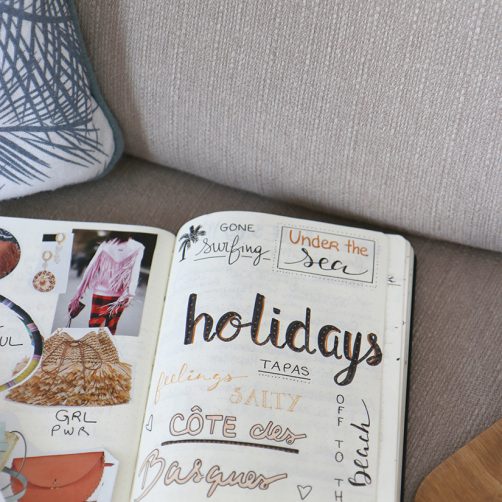 GRL
PWR
GONE
Surfing
Under the
sea
holidays
TAPAS
feelings
SALTY
CÔTE des
Basques
OFF TO TH
Beach